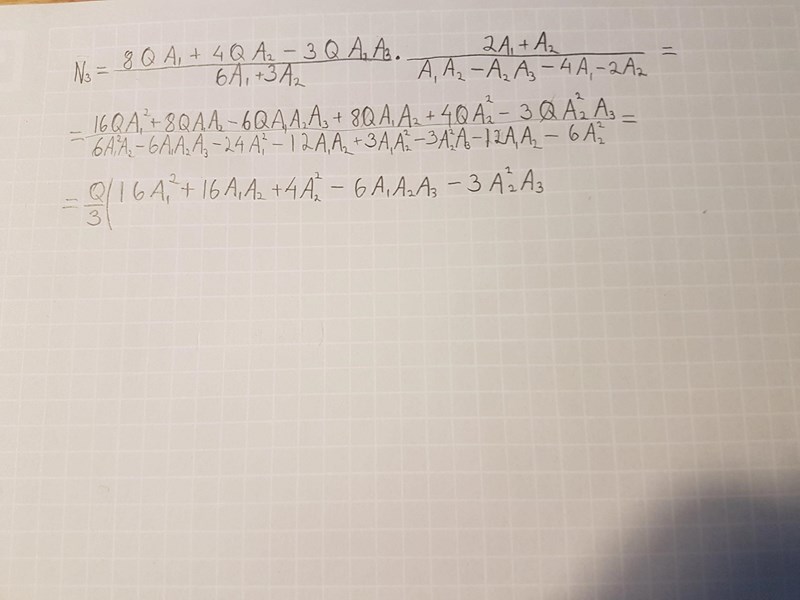 N₃ = (8QA₁ + 4QA₂ − 3QA₂A₃)/(6A₁+3A₂) · (2A₁+A₂)/(A₁A₂ − A₂A₃ − 4A₁ − 2A₂) =
= (16QA₁² + 8QA₁A₂ − 6QA₁A₂A₃ + 8QA₁A₂ + 4QA₂² − 3QA₂²A₃)/(6A₁²A₂ − 6A₁A₂A₃ − 24A₁² − 12A₁A₂ + 3A₁A₂² − 3A₂²A₃ − 12A₁A₂ − 6A₂²) =
= Q/3 (16A₁² + 16A₁A₂ + 4A₂² − 6A₁A₂A₃ − 3A₂²A₃